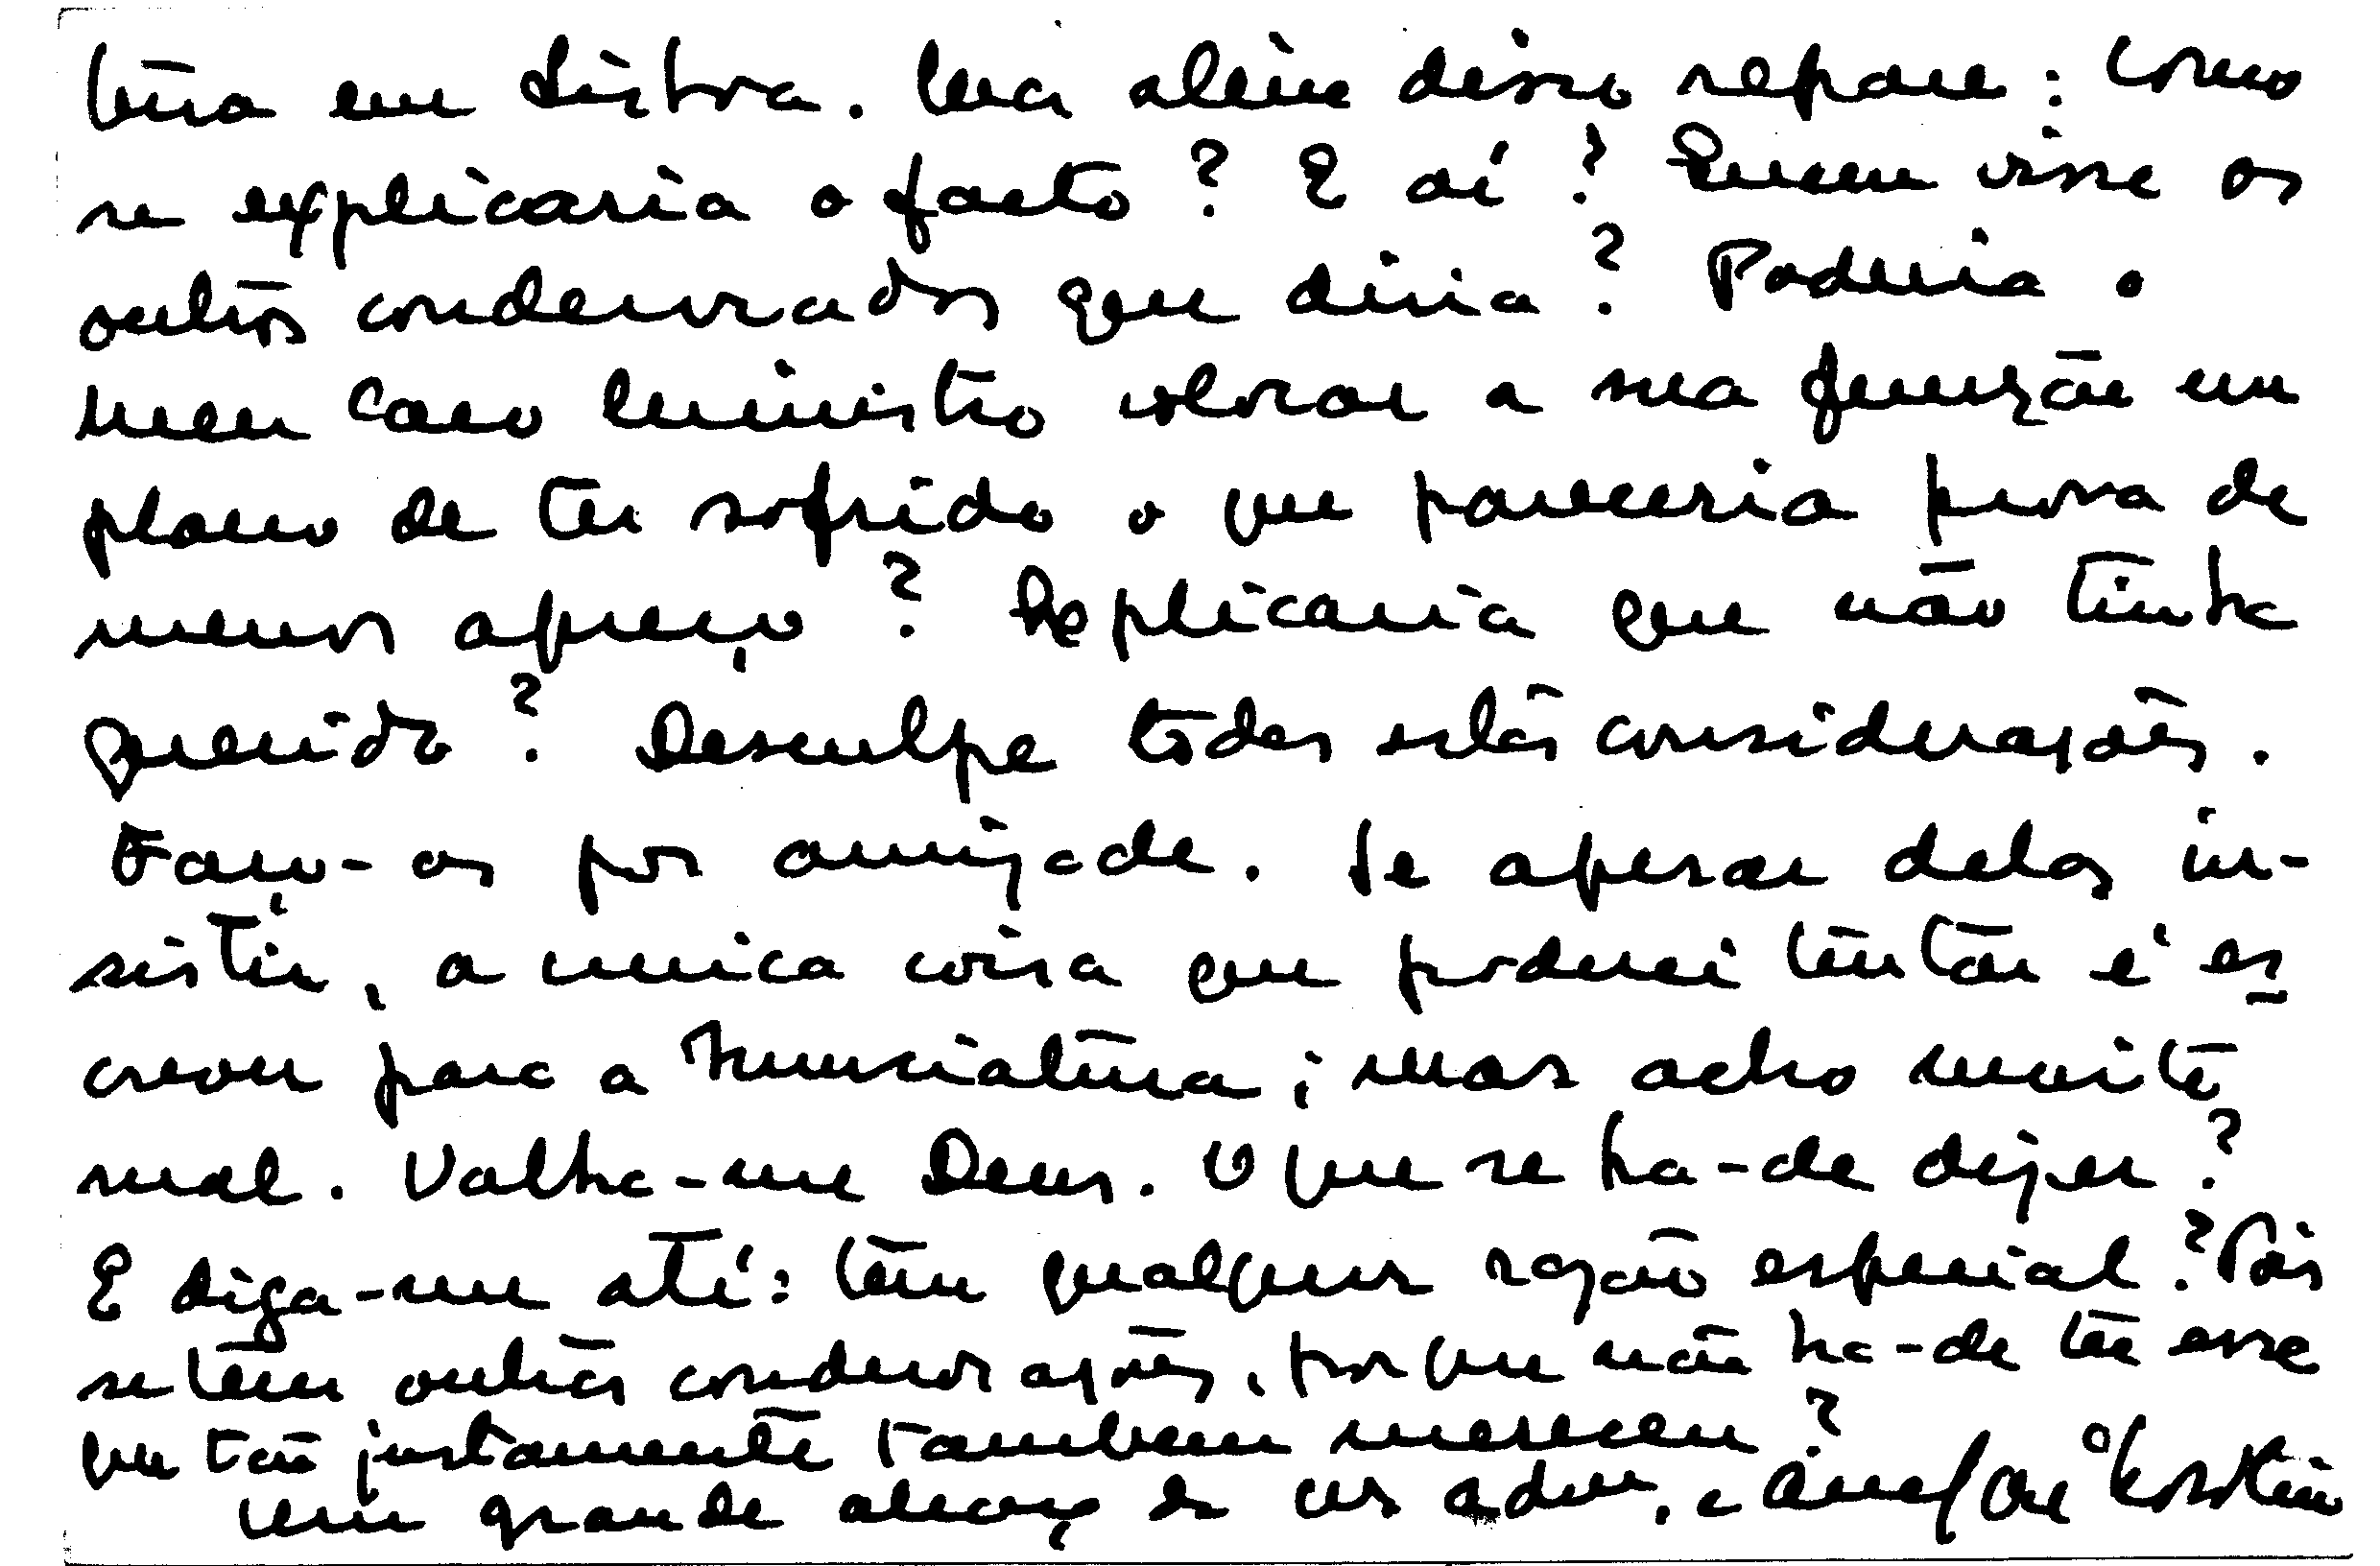 tura em Lisboa. Mas além disso repare: como
se explicaria o facto? E aí? Quem visse os
outros condecorados que diria? Poderia o
meu caro ministro colocar a sua função em
plano de ter sofrido o que pareceria prova de
menos apreço? Replicaria que não tinha
querido? Desculpe todas estas considerações.
Faço-as por amizade. Se apesar delas in-
sistir, a unica coisa que poderei tentar é es
crever para a Nunciatura; mas acho muito
mal. Valha-me Deus. O que se ha-de dizer?
E diga-me até: tem qualquer razão especial? Pois
se tem outras condecorações, porque não ha-de ter esse
que tão justamente tambem mereceu?
um grande abraço do seu